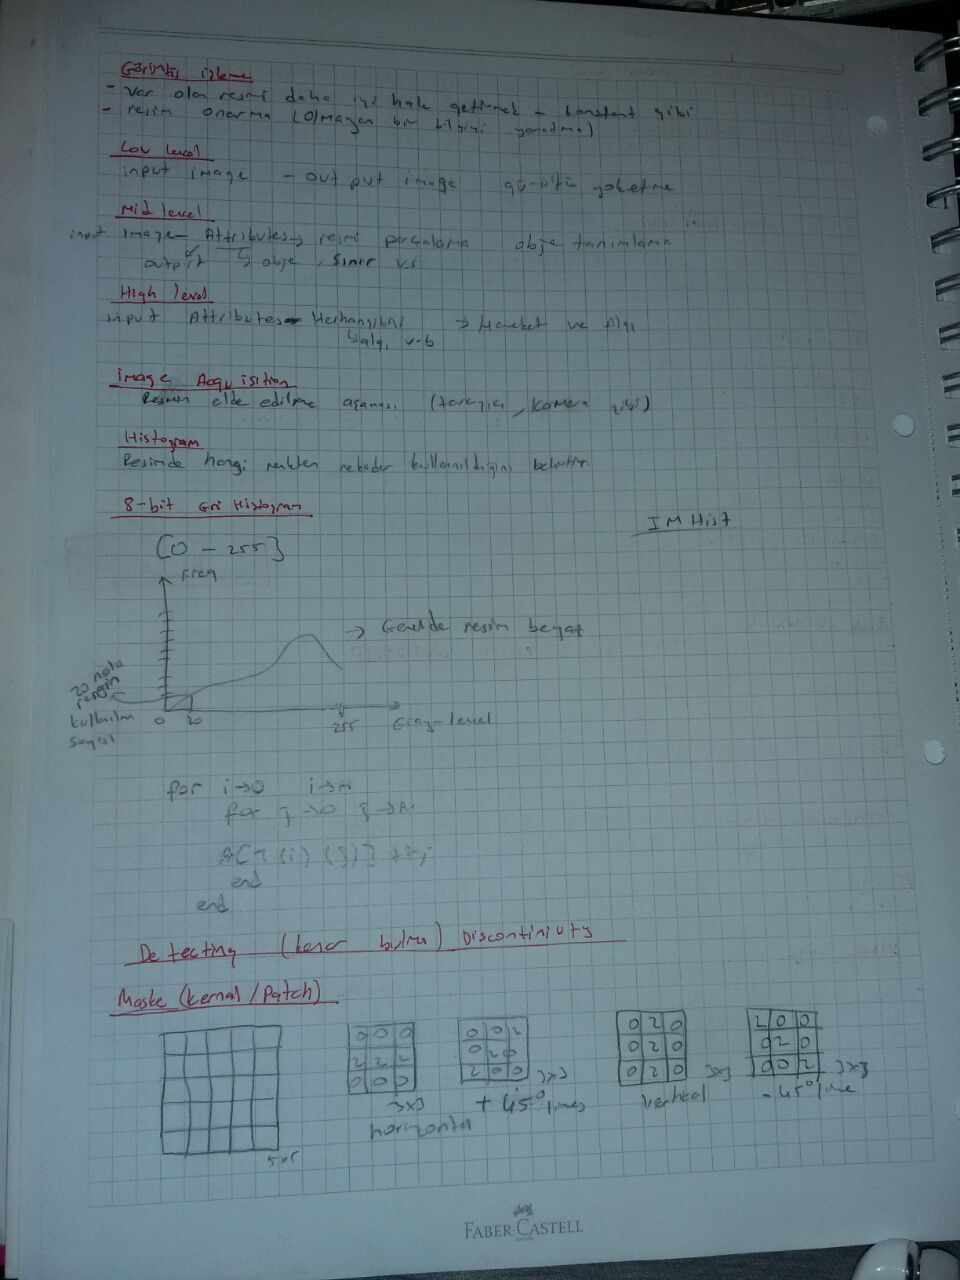 Görüntü işleme
- Var olan resmi daha iyi hale getirmek - konstant gibi
- resim onarma (olmayan bir bilgiyi yaratma)
Low level
input image - out put image gürültü yoketme
Mid level
input image - Attributes → resmi parçalama obje tanımlama
output → obje, sınır vs
High level
input Attributes - Herhangibiri → Hareket ve Algı
v.b
image Acquisition
Resmin elde edilme aşaması (tarayıcı, kamera gibi)
Histogram
Resimde hangi renkten nekadar kullanıldığını belirtir.
8-bit Gri Histogram
IM Hist
[0 - 255]
Freq
→ Genelde resim beyaz
20 nolu
rengin
kullanılma
sayısı
0 20 255 Gray-level
for i→0
for j→0
end
end
Detecting (kenar bulma) Discontinivity
Maske (kernal / Patch)
0 0 0
2 2 2
0 0 0
0 0 2
0 2 0
2 0 0
0 2 0
0 2 0
0 2 0
2 0 0
0 2 0
0 0 2
5x5
3x3
horizontal
3x3
+ 45° lines
3x3
vertical
3x3
- 45° line
FABER-CASTELL